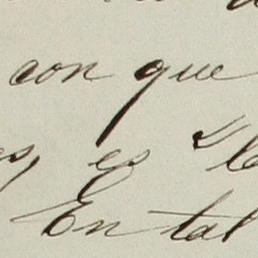 con que
es, es
En tal